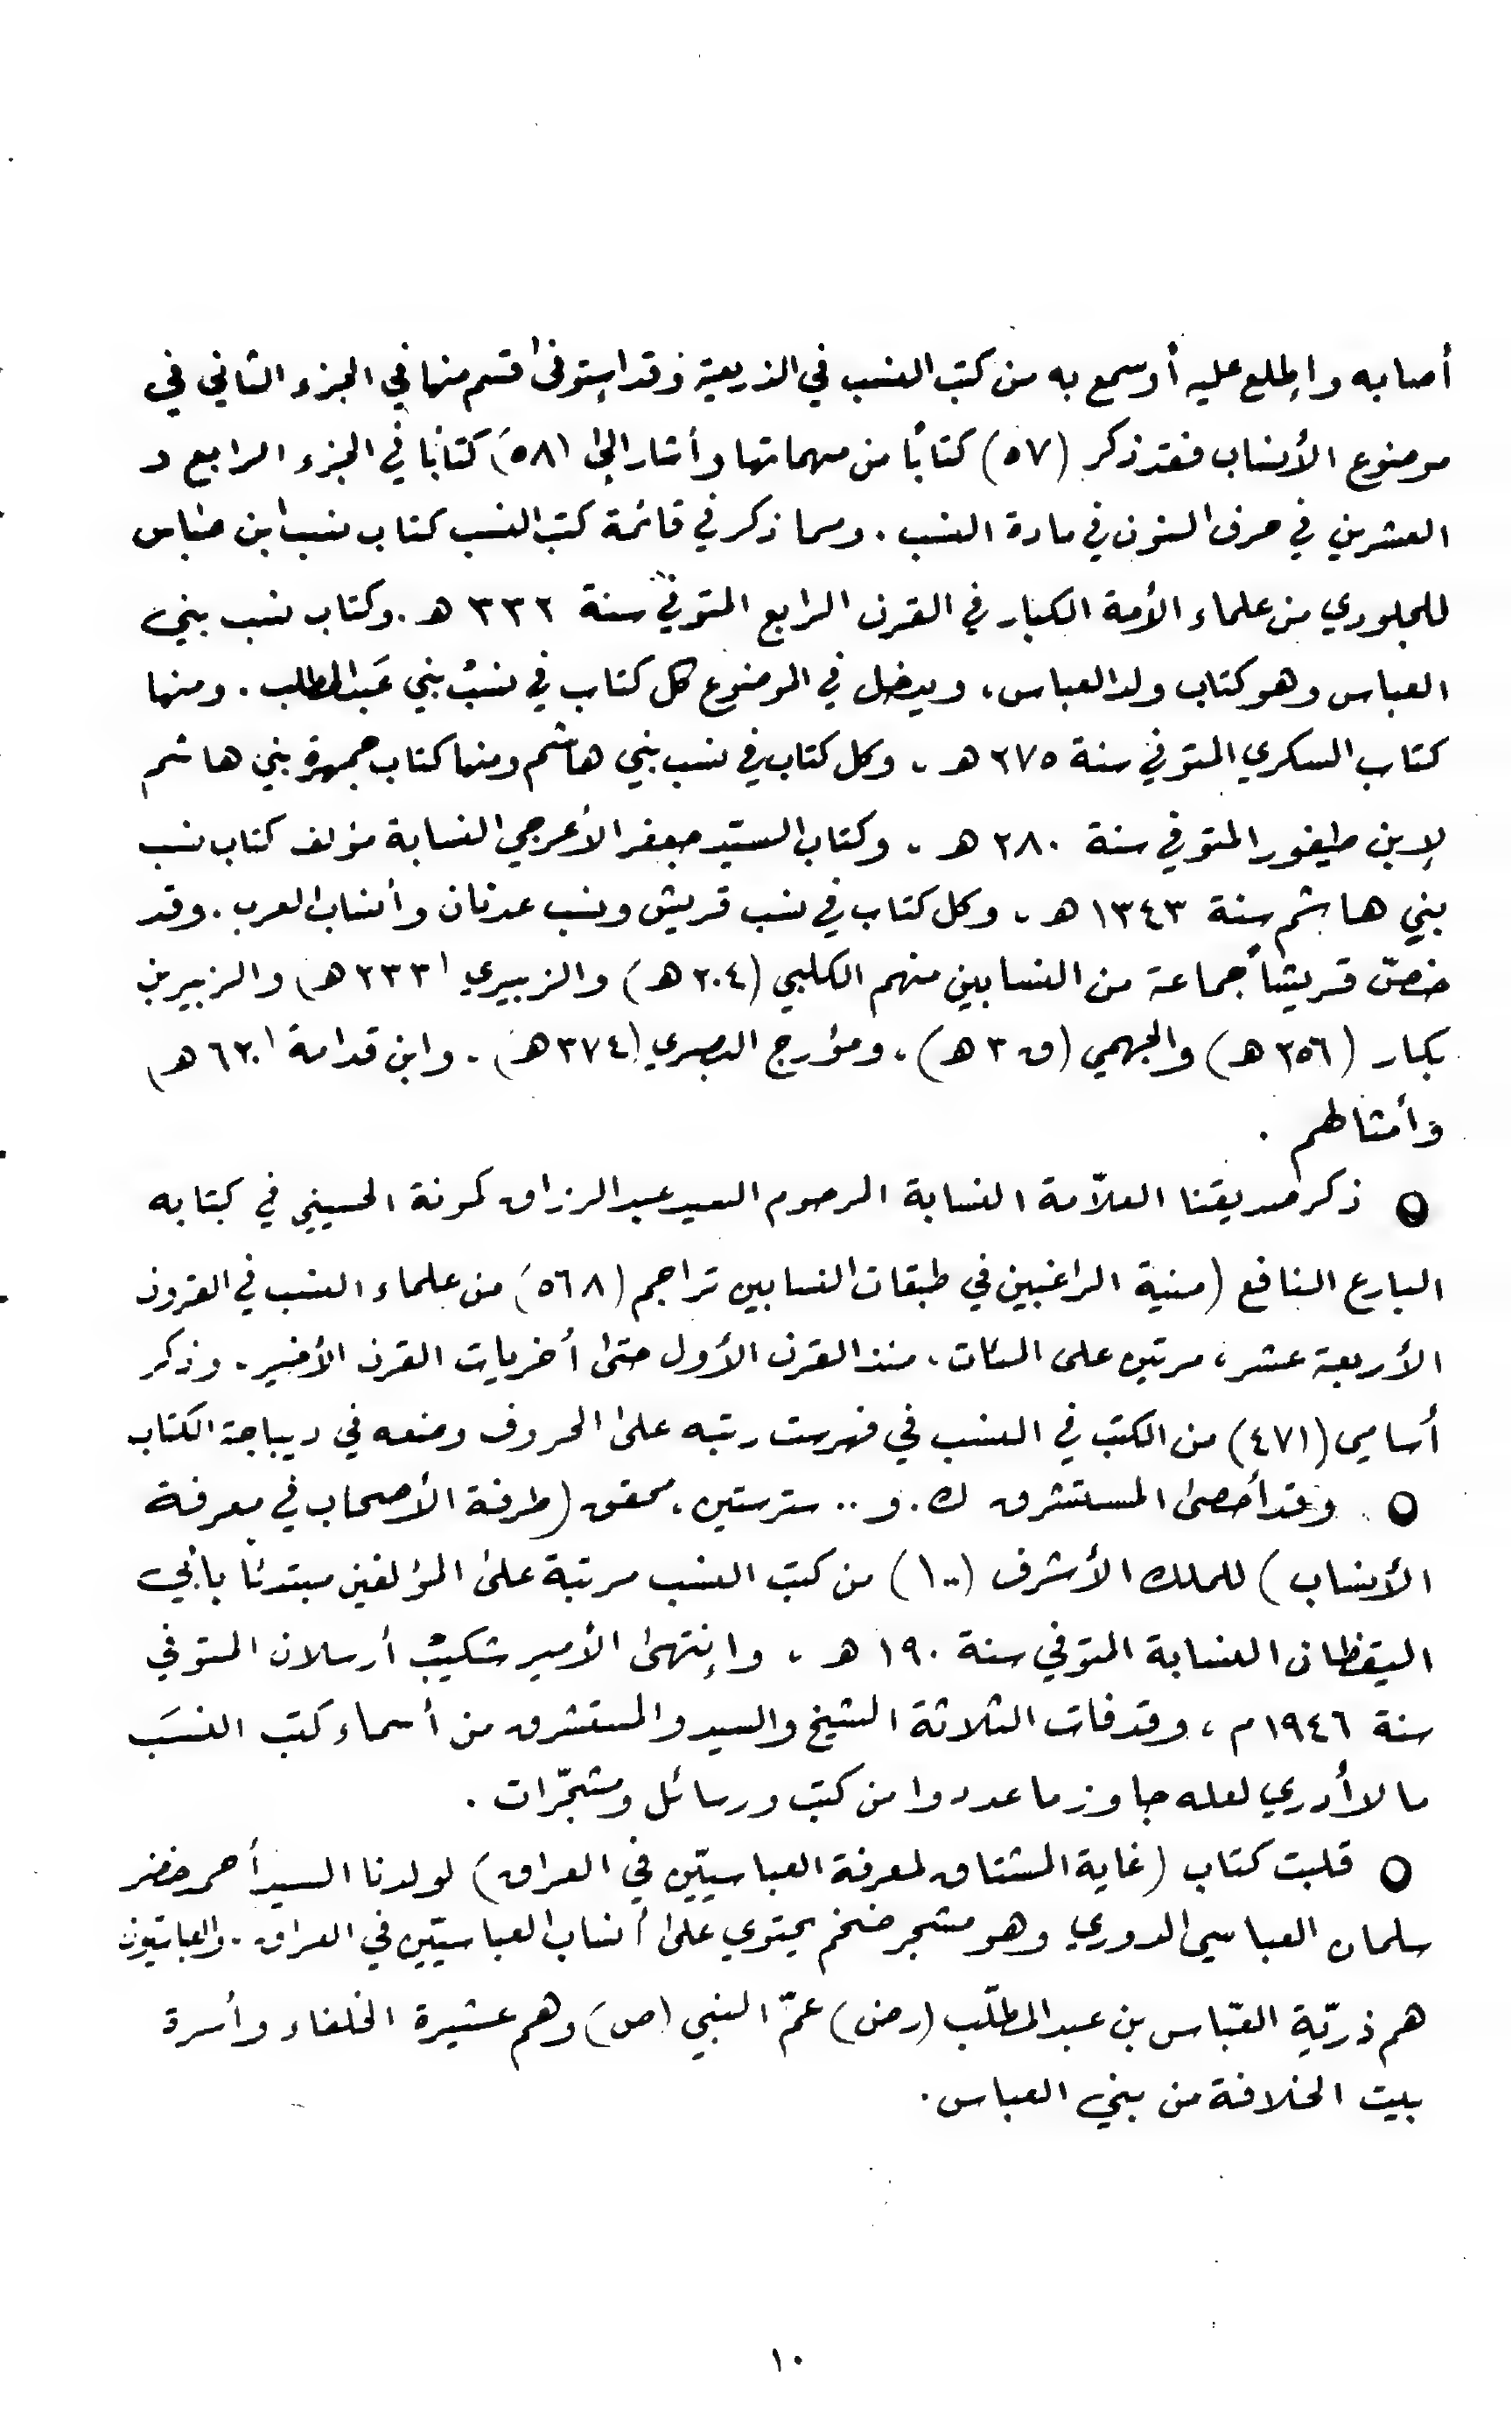 أصابه وإطلع عليه أوسمع به من كتب النسب في الذريعة وقد إستوفى قسم منها في الجزء الثاني في
موضوع الأنساب فقد ذكر (٥٧) كتابًا من مهماتها وأشار إلى (٥٨) كتابًا في الجزء الرابع و
العشرين في حرف النون في مادة النسب . ومما ذكر في قائمة كتب النسب كتاب نسب ابن عباس
للجلودي من علماء الأمة الكبار في القرن الرابع المتوفي سنة ٣٣٢ هـ . وكتاب نسب بني
العباس وهو كتاب ولد العباس ، ويدخل في الموضوع كل كتاب في نسب بني عبد المطلب . ومنها
كتاب السكري المتوفي سنة ٢٧٥ هـ ، وكل كتاب في نسب بني هاشم ومنها كتاب جمهرة بني هاشم
لإبن طيفور المتوفي سنة ٢٨٠ هـ ، وكتاب السيّد جعفر الأعرجي النسابة مؤلف كتاب نسب
بني هاشم سنة ١٣٤٣ هـ ، وكل كتاب في نسب قريش ونسب عدنان وأنساب العرب . وقد
خصّ قريشاً جماعة من النسابين منهم الكلبي (٢٠٤ هـ) والزبيري (٢٣٣ هـ) والزبير بن
بكار (٢٥٦ هـ) والجهمي (ق ٣ هـ) ، ومؤرج البصري (٣٧٤ هـ) . وابن قدامة (٦٢٠ هـ)
وأمثالهم .
○ ذكر صديقنا العلاّمة النسابة المرحوم السيد عبد الرزاق كمونة الحسيني في كتابه
البارع النافع (منية الراغبين في طبقات النسابين تراجم (٥٦٨) من علماء النسب في القرون
الأربعة عشر ، مرتبين على المئات ، منذ القرن الأول حتى أخريات القرن الأخير . وذكر
أسامي (٤٧١) من الكتب في النسب في فهرست رتبه على الحروف وضعه في ديباجة الكتاب
○ وقد أحصى المستشرق ك . و .. سترستين ، محقق (طرفة الأصحاب في معرفة
الأنساب) للملك الأشرف (١٠٠) من كتب النسب مرتبة على المؤلفين مبتدئا بأبي
اليقظان النسابة المتوفي سنة ١٩٠ هـ ، وإنتهى الأمير شكيب أرسلان المتوفي
سنة ١٩٤٦ م ، وقد فات الثلاثة الشيخ والسيد والمستشرق من أسماء كتب النسَب
ما لا أدري لعله جاوز ما عددوا من كتب ورسائل ومشجّرات .
○ قلبت كتاب (غاية المشتاق لمعرفة العباسيّين في العراق) لولدنا السيد أحمد خضر
سلمان العباسي الدوري وهو مشجر ضخم يحتوي على أنساب العباسيّين في العراق . والعباسيّون
هم ذريّة العبّاس بن عبد المطلّب (رض) عمّ النبي (ص) وهم عشيرة الخلفاء وأسرة
بيت الخلافة من بني العباس .
١٠